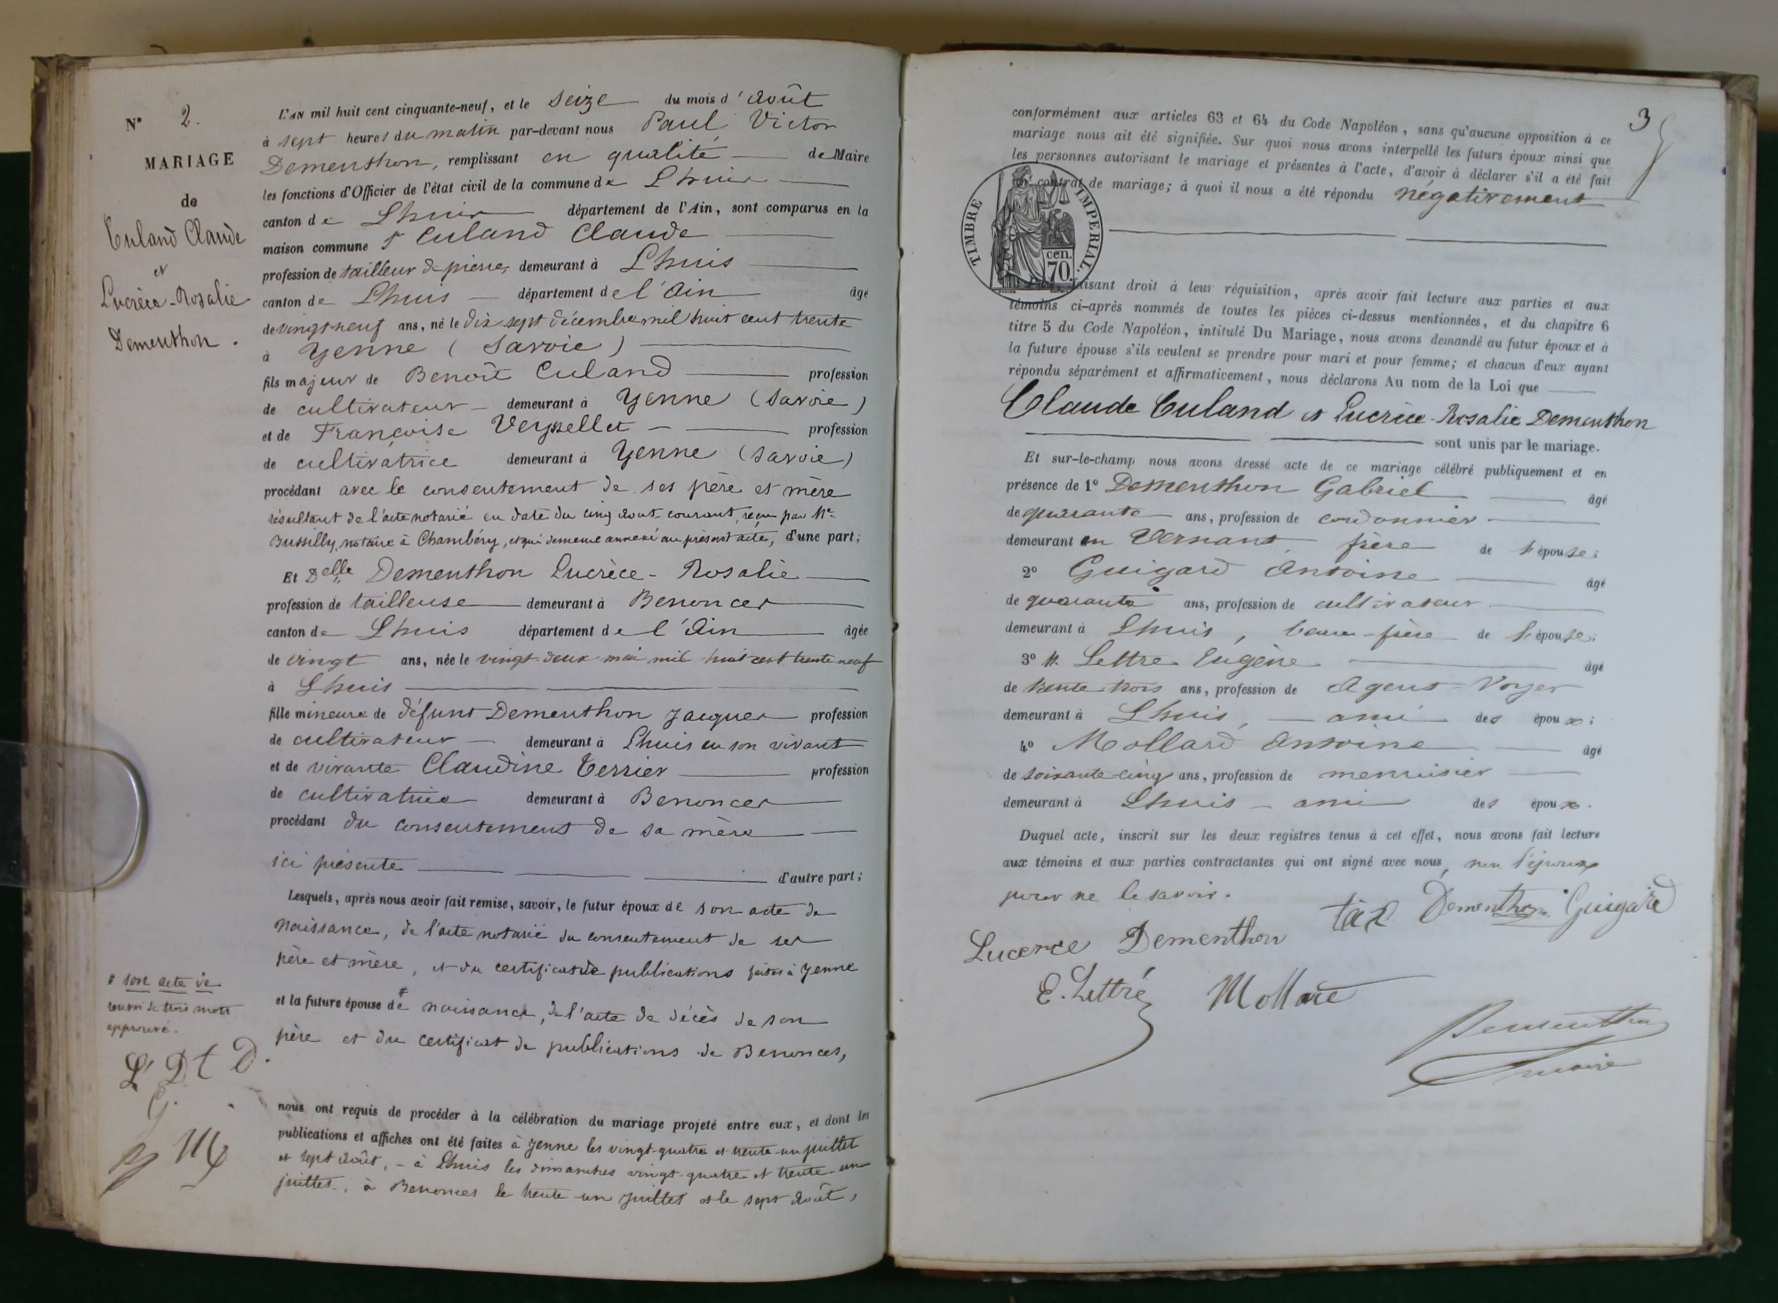 N° 2.
MARIAGE
de
Culand Claude
et
Lucrèce-Rosalie
Dementhon.
L'AN mil huit cent cinquante-neuf, et le seize du mois d'août
à sept heures du matin par-devant nous Paul Victor
Dementhon, remplissant en qualité de Maire
les fonctions d'Officier de l'état civil de la commune de Lhuis
canton de Lhuis département de l'Ain, sont comparus en la
maison commune Sr Culand Claude
profession de tailleur de pierres demeurant à Lhuis
canton de Lhuis département de l'Ain âgé
de vingt-neuf ans, né le dix sept décembre mil huit cent trente
à Yenne (Savoie)
fils majeur de Benoît Culand profession
de cultivateur demeurant à Yenne (Savoie)
et de Françoise Veyrellet profession
de cultivatrice demeurant à Yenne (Savoie)
procédant avec le consentement de ses père et mère
résultant de l'acte notarié en date du cinq août courant, reçu par Me
Bussilly, notaire à Chambéry, et qui demeure annexé au présent acte, d'une part;
Et Delle Dementhon Lucrèce-Rosalie
profession de tailleuse demeurant à Benonces
canton de Lhuis département de l'Ain âgée
de vingt ans, née le vingt-deux mai mil huit cent trente neuf
à Lhuis
fille mineure de défunt Dementhon Jacques profession
de cultivateur demeurant à Lhuis en son vivant
et de vivante Claudine Terrier profession
de cultivatrice demeurant à Benonces
procédant du consentement de sa mère
ici présente d'autre part;
Lesquels, après nous avoir fait remise, savoir, le futur époux de son acte de
naissance, de l'acte notarié du consentement de ses
père et mère, et du certificat de publications faites à Yenne
et la future épouse de # naissance, de l'acte de décès de son
père et du certificat de publications de Benonces,
# son acte de
renvoi de trois mots
approuvé.
L D t D.
G.
M
nous ont requis de procéder à la célébration du mariage projeté entre eux, et dont les
publications et affiches ont été faites à Yenne les vingt-quatre et trente-un juillet
et sept août, - à Lhuis les dimanches vingt-quatre et trente-un
juillet, à Benonces le trente-un juillet et le sept août,
3
conformément aux articles 63 et 64 du Code Napoléon, sans qu'aucune opposition à ce
mariage nous ait été signifiée. Sur quoi nous avons interpellé les futurs époux ainsi que
les personnes autorisant le mariage et présentes à l'acte, d'avoir à déclarer s'il a été fait
contrat de mariage; à quoi il nous a été répondu négativement
TIMBRE IMPERIAL.
70 cen.
faisant droit à leur réquisition, après avoir fait lecture aux parties et aux
témoins ci-après nommés de toutes les pièces ci-dessus mentionnées, et du chapitre 6
titre 5 du Code Napoléon, intitulé Du Mariage, nous avons demandé au futur époux et à
la future épouse s'ils veulent se prendre pour mari et pour femme; et chacun d'eux ayant
répondu séparément et affirmativement, nous déclarons Au nom de la Loi que
Claude Culand et Lucrèce-Rosalie Dementhon
sont unis par le mariage.
Et sur-le-champ nous avons dressé acte de ce mariage célébré publiquement et en
présence de 1° Dementhon Gabriel âgé
de quarante ans, profession de cordonnier
demeurant en Vernant frère de l'épouse;
2° Guigard Antoine âgé
de quarante ans, profession de cultivateur
demeurant à Lhuis, beau-frère de l'épouse;
3° M. Lettre Eugène âgé
de trente-trois ans, profession de Agent-Voyer
demeurant à Lhuis, ami des époux;
4° Mollard Antoine âgé
de soixante-cinq ans, profession de menuisier
demeurant à Lhuis - ami des époux.
Duquel acte, inscrit sur les deux registres tenus à cet effet, nous avons fait lecture
aux témoins et aux parties contractantes qui ont signé avec nous, non l'époux
pour ne le savoir.
Lucerce Dementhon Dementhon Guigard
E. Lettré Mollard
Dementhon
maire